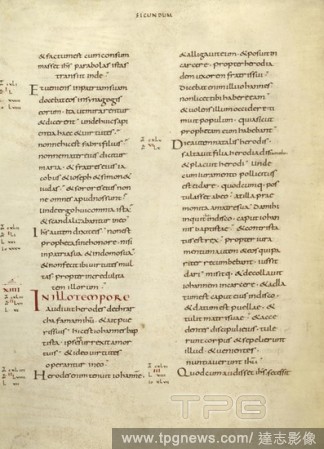 SECUNDUM
&factumest cumconsum
masset ihs parabolas istas
transiit inde
Etueniens inpatriamsuam
docebateos insynagogis
eorum itautmirarentur
&dicerent undehuicsapi
entia haec & uirtutes
nonnehicest fabrifilius
nonnemater eius dicitur
maria &fratres eius ia
cob & ioseph & simon &
iudas & sorores eius non
ne omnes apudnossunt
Undeergo huicomnia ista
& scandalizabantur ineo
Ihs autem dixit eis nonest
propheta sinehonore nisi
inpatriasua & indomosua
& nonfecit ibi uirtutes mul
tas propter incredulita
tem illorum
XIIII
INILLOTEMPORE
Audiuit herodes tetrar
cha famam ihu & ait pue
rissuis hicest iohannes bap
tista ipse surrexit amor
tuis & ideo uirtutes
operantur ineo
Herodes enim tenuit iohanne
& alligauit eum & posuit in
carcere propter herodia
dem uxorem fratris sui
Dicebat enim illi iohannes
non licet tibi habere eam
& uolens illum occidere ti
muit populum quia sicut
prophetam eum habebant
Die autem natalis herodis
saltauit filia herodiadis
& placuit herodi unde
cum iuramento pollicitus
est ei dare quodcumq. pos
tulasset abeo at illa prae
monita amatre sua Da mihi
inquit indisco caput iohan
nis baptistae & contrista
tus est rex propter iura
mentum autem & eos qui pa
riter recumbebant iussit
dari misitq. & decollauit
iohannem incarcere & alla
tum est caput eius indisco
& datum est puellae &
tulit matri suae & acce
dentes discipuli eius tule
runt corpus & sepelierunt
illud & uenientes
nuntiauerunt ihu
Quod cum audisset ihs secessit
TPG
www.tpgnews.com/達志影像